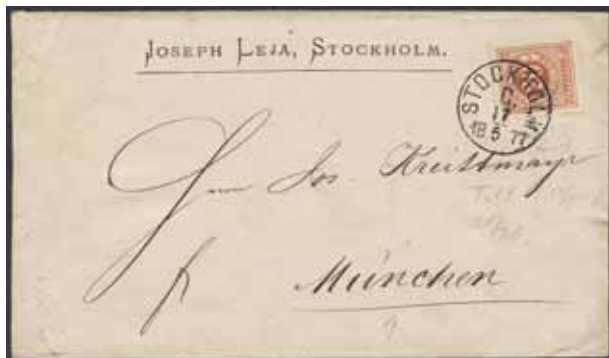 JOSEPH LEJA, STOCKHOLM.
STOCKHOLM
17
18 5 77
Herrn Jos. Kreittmayr
München